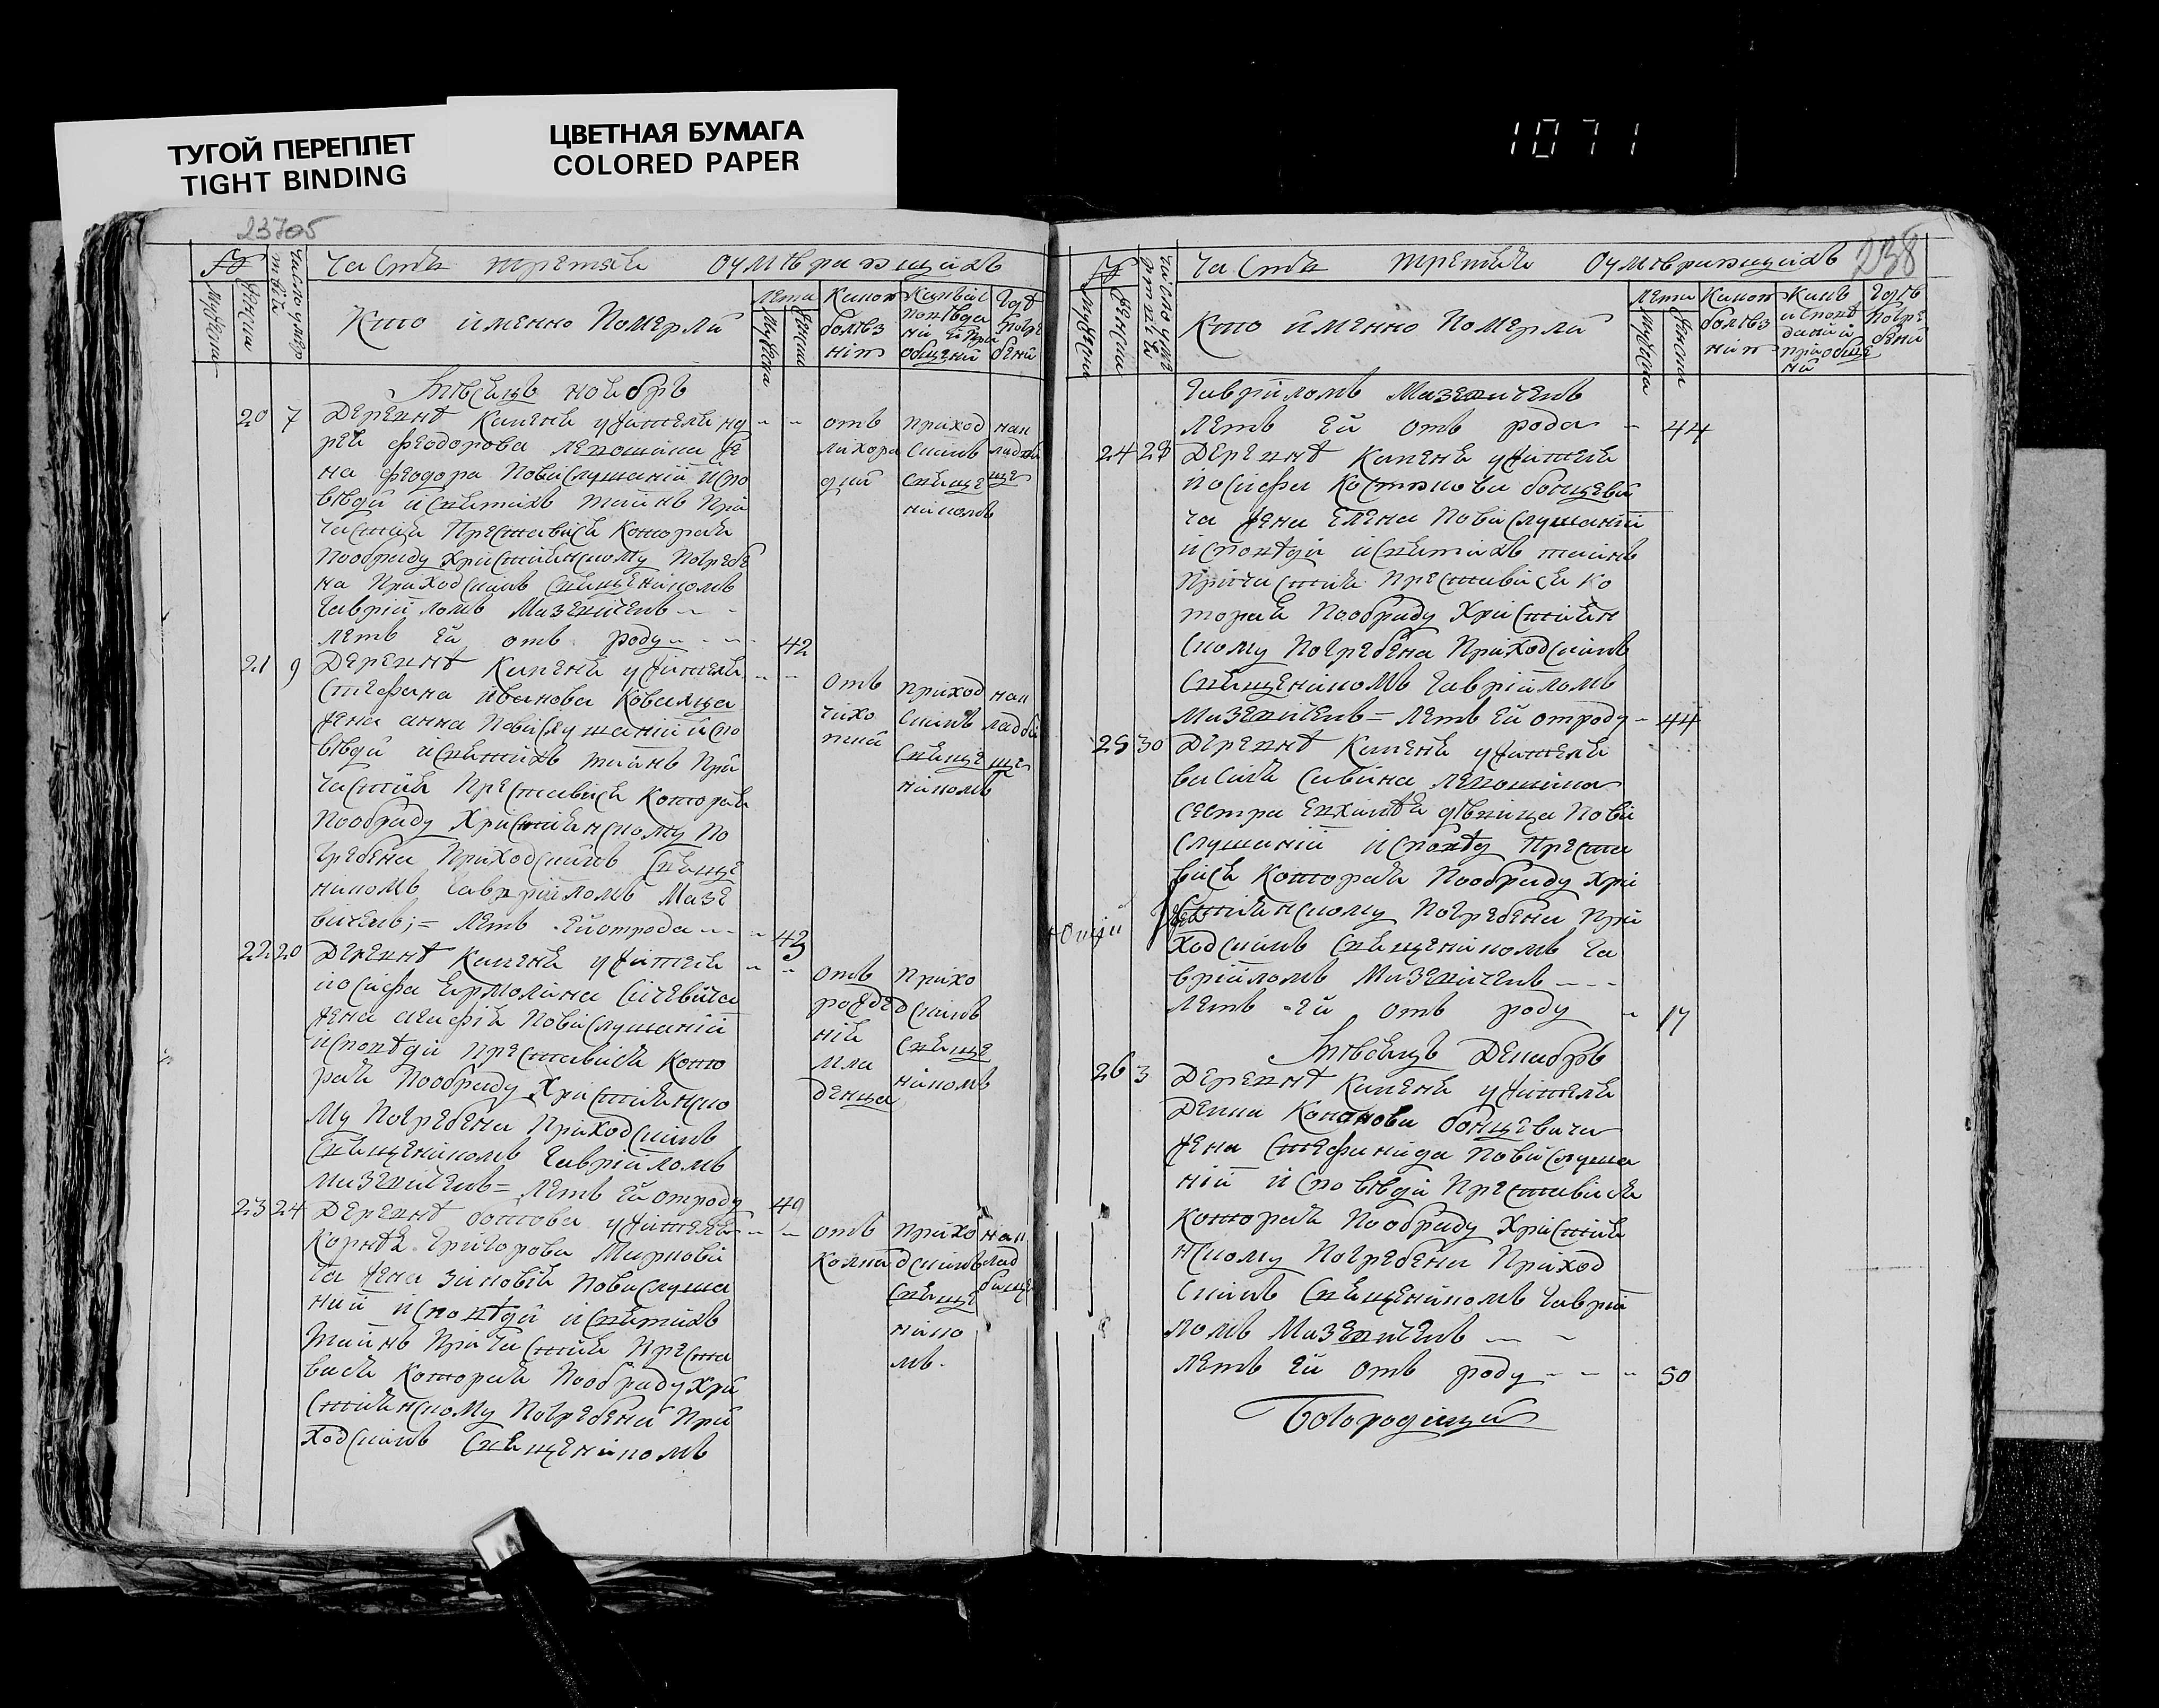 ТУГОЙ ПЕРЕПЛЕТ
TIGHT BINDING
ЦВЕТНАЯ БУМАГА
COLORED PAPER
1071
23705
Часть третья о умирающихъ
№ Мужеска Женска
Число умертвій
Кто именно Померли
Лета Мужеска Женска
Какою болезнію
Кемъ исповеданы и приобщены
Где погребены
Месяцъ ноябрь
20 7 Деревне Каменя ужителя Ан
рея Феодорова Лепошина же
на Феодора Повислушаніи испо
ведй и святихъ таинъ При
частия Преставися Которая
Пообряду християнскому Погребе
на Приходскимъ священикомъ
Гавріиломъ Мазевичемъ
Летъ ей отъ роду 42
отъ лихорадки
Приходскимъ священикомъ
на кладбище
21 9 Деревне Каменя ужителя
Стефана Иванова Ковальца
жена анна Повислушаніи испо
веди и святихъ таинъ При
частия Преставися Которая
Пообряду Християнскому По
гребена Приходскимъ Свяще
никомъ Гавріиломъ Мазе
вичемъ; = Летъ ей отрода 43
отъ чахотки
приходскимъ священикомъ
на кладбище
22 20 Деревне Каменя ужителя
иосифа Ермолина Сичевича
жена агафия Повислушаніи
исповеди преставися Кото
рая Пообряду Християнско
му Погребена Приходскимъ
Священикомъ Гавріиломъ
Мазевичемъ = Летъ ей отроду 49
отъ рождения младенца
Приходскимъ священикомъ
23 24 Деревне ботова ужителя
Корнея Григорова Маркови
ча жена зиновия Повислуша
нии исповеди и святихъ
таинъ Причастия Преста
вися Которая Пообряду Хри
стиянскому Погребена При
ходскимъ Священикомъ
отъ Колика
Приходскимъ Священикомъ
на кладбище
238
Часть третья о умирающихъ
№ Мужеска Женска
Число умертвій
Кто именно Померли
Лета Мужеска Женска
Какою болезнію
Кемъ исповеданы и приобщены
Где погребены
Гавріиломъ Мазевичемъ
Летъ ей отъ рода 44
24 28 Деревне Каменя ужителя
иосифа Костюкова бонцеви
ча жена Елена Повислушаніи
исповеди и святихъ таинъ
причастия Преставися Ко
торая Пообряду Християн
скому Погребена Приходскимъ
Священикомъ Гавріиломъ
Мазевичемъ = Летъ ей отроду 44
25 30 Деревне Каменя ужителя
василя Савина Лепошина
сестра Евхимея девица Пови
слушаніи исповеду Преста
вися Которая Пообряду Хри
стиянскому Погребена При
ходскимъ Священикомъ Га
вріиломъ Мазевичемъ
Летъ ей отъ роду 17
Месяцъ Декабрь
26 3 Деревне Каменя ужителя
Деина Кононова бонцевича
жена Стефанида Повислуша
ніи исповеди Преставися
Которая Пообряду Християн
нскому Погребена Приход
скимъ Священикомъ Гаврии
ломъ Мазевичемъ
Летъ ей отъ роду 50
Богородицкй